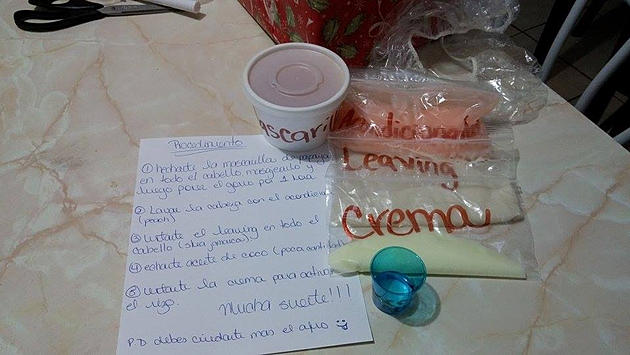 Procedimiento
① hecharte la mascarilla de papaya
en todo el cabello masajearlo y
luego ponse el gorro por 1 hora
② Lavar la cabeza con el acondicion
(peach)
③ Untarte el leaving en todo el
cabello (shea jamaica)
④ echarte aceite de coco (poca cantidad
⑤ Untarte la crema para activar
el rizo.
Mucha suerte!!!
P.D debes cuidarte mas el afro
ascaril
Leaving
Crema